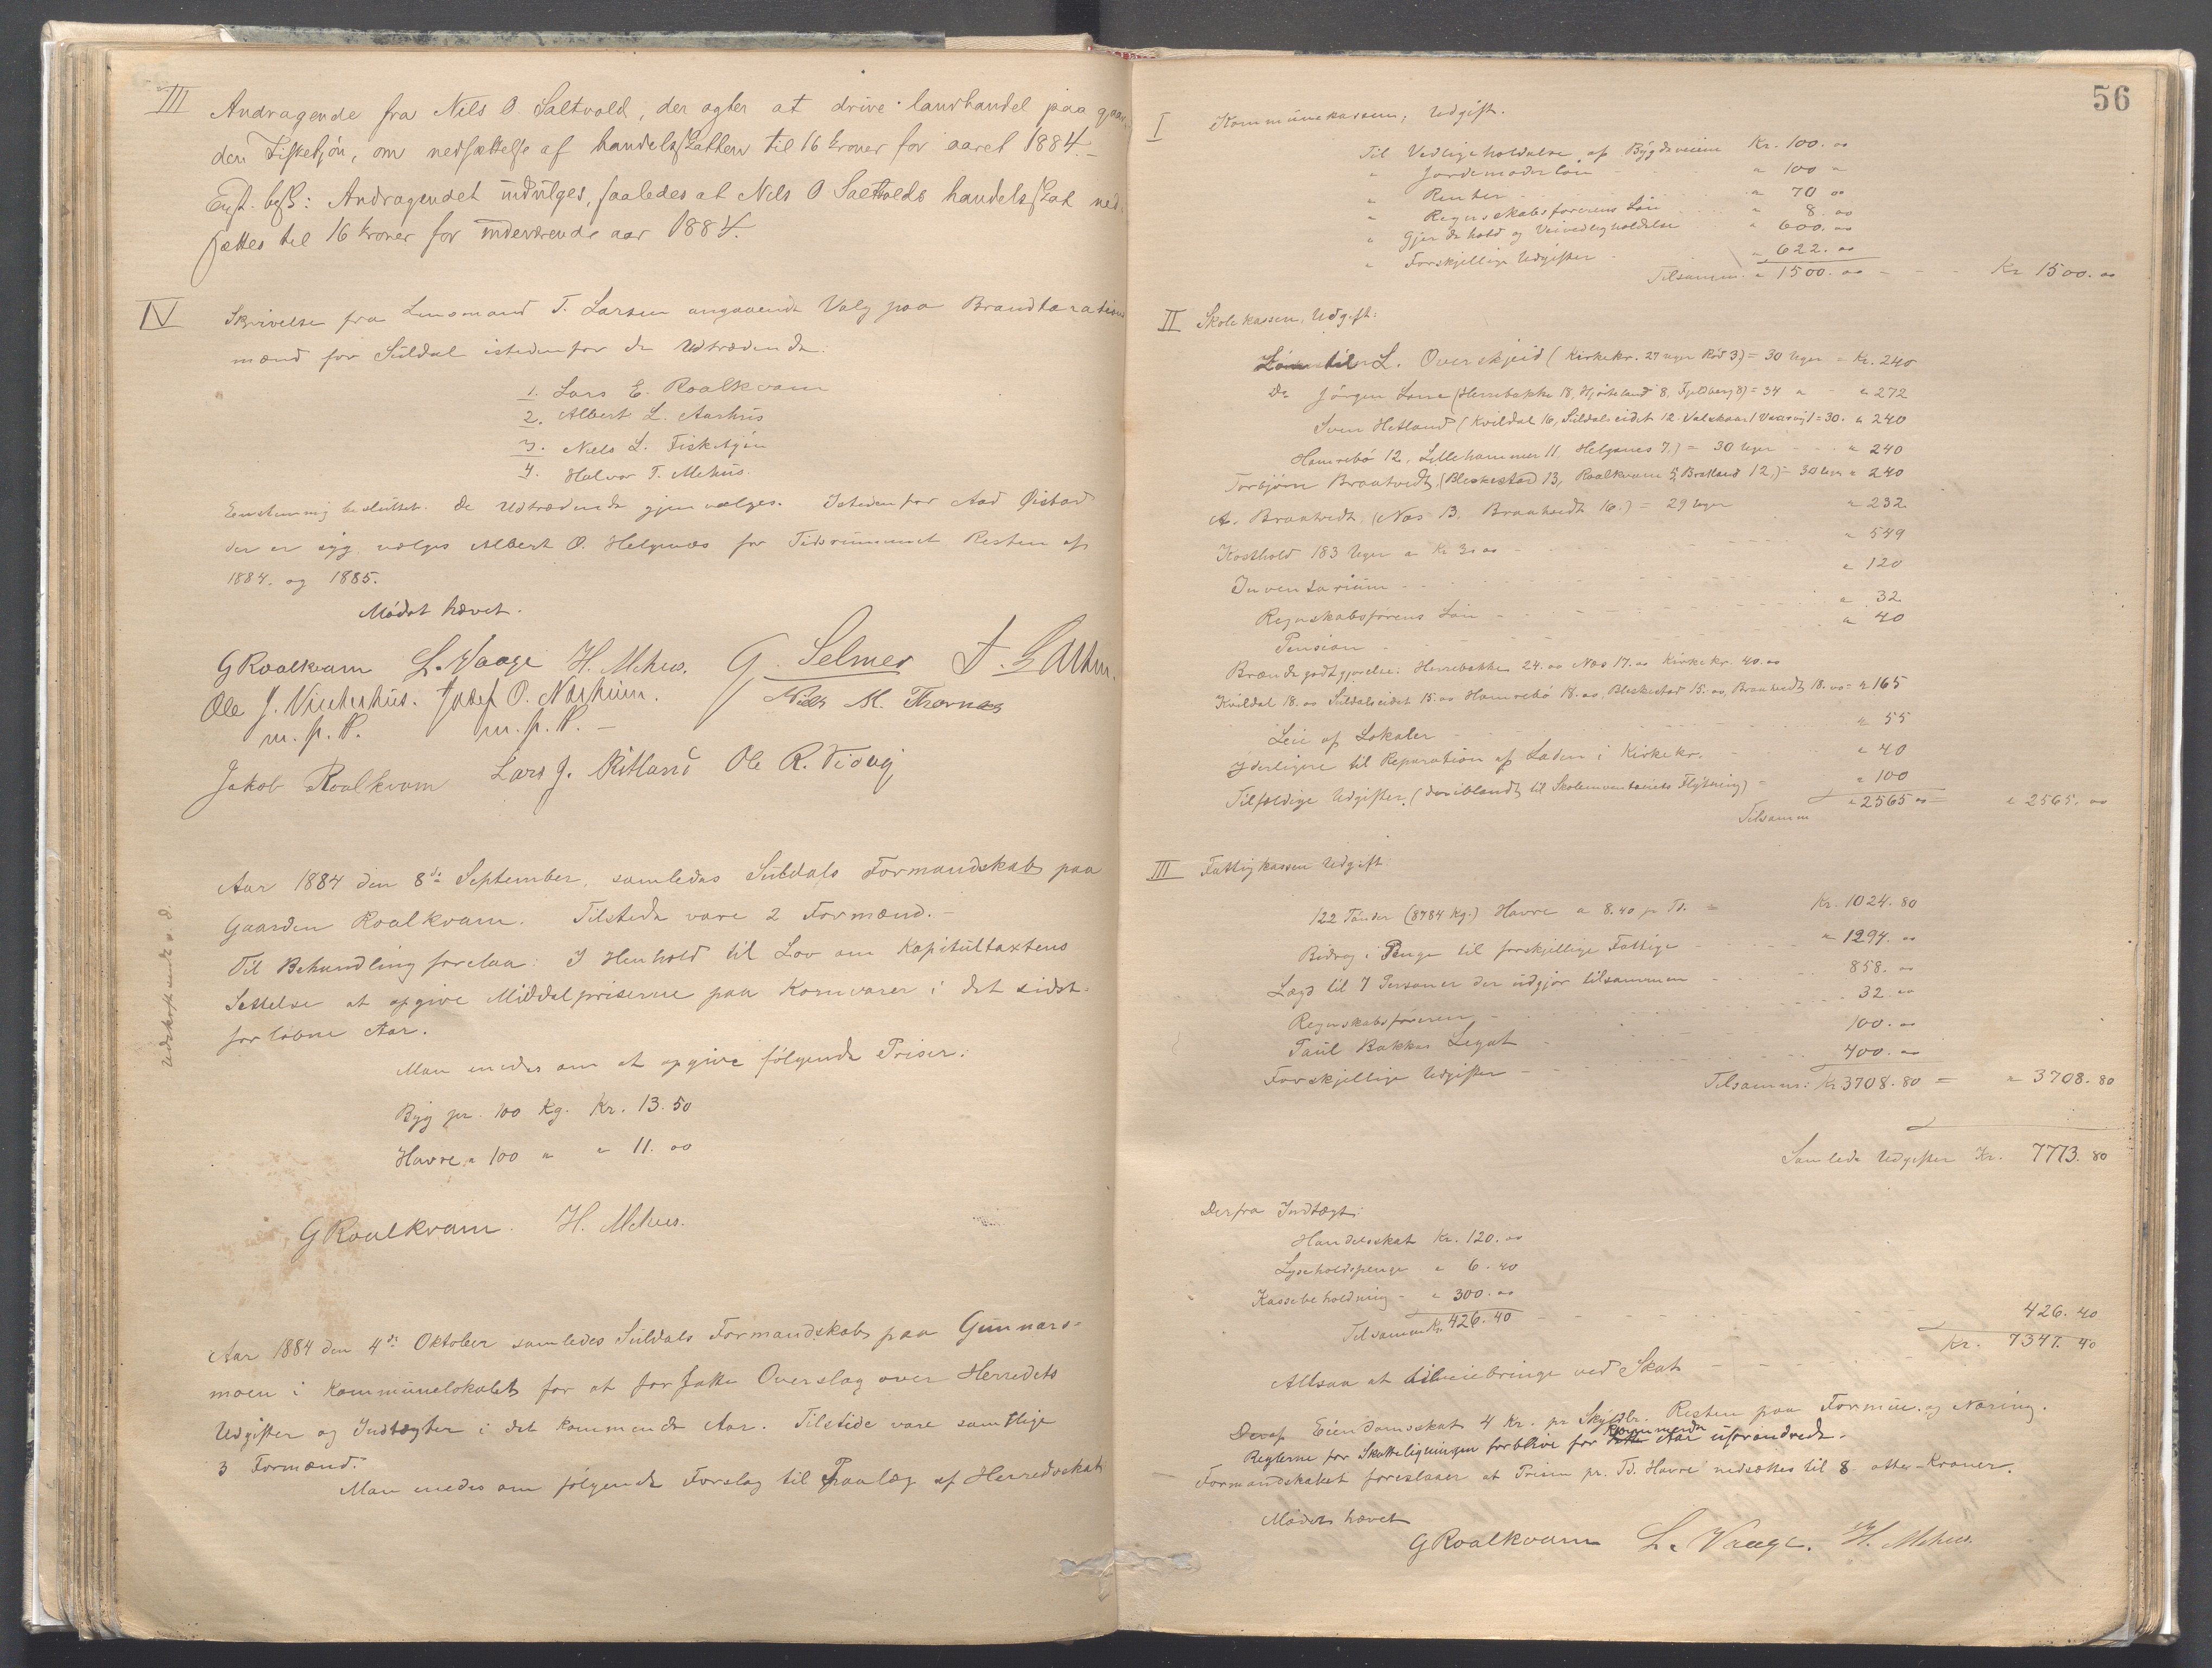 III Andragende fra Nils O. Saltvold, der agter at drive landhandel paa gaar-
den Fisketjön, om nedsættelse af handelsskatten til 16 kroner for aaret 1884.-
Enst. besl: Andragendet indvilges, saaledes at Nils O Saltvolds handelsskat ned-
sættes til 16 kroner for indeværende aar 1884.
IV Skrivelse fra Lensmand T. Larsen angaaende Valg paa Brandtaxations
mænd for Suldal istedenfor de Udtrædende.
1. Lars E. Roalkvam
2. Albert L. Aarhus
3. Niels L. Fisketjön
4. Halvor T. Mehus.
Eenstemmig besluttet. De Udtrædende gjenvælges. Istedenfor Aad Øistad
der er syg vælges Albert O. Helgenæs for Tidsrummet Resten af
1884. og 1885.
Mödet hævet.
G Roalkvam L. Vaage H. Mehus. G. Selmer T. Larsen.
Ole J. Vinterhus. Josef O. Nærheim. Niels M. Thornæs
m. p. P. m. p. P. -
Jakob Roalkvam Lars J. Ritland Ole R. Veovig
Aar 1884 den 8de September, samledes Suldals Formandskab paa
Gaarden Roalkvam. Tilstede vare 2 Formænd.-
Til Behandling forelaa: I Henhold til Lov om Kapitultaxtens
Settelse at opgive Middelpriserne paa Kornvarer i det sidst-
forløbne Aar.
Man enedes om at opgive følgende Priser:
Byg pr. 100 Kg. Kr. 13. 50
Havre " 100 " " 11. 00
Udskrift sendt s. D.
G Roalkvam. H. Mehus.
Aar 1884 den 4de Oktober samledes Suldals Formandskab paa Gunnars-
moen i Kommunelokalet for at forfatte Overslag over Herredets
Udgifter og Indtægter i det kommende Aar. Tilstede vare samtlige
3 Formænd.
Man enedes om følgende Forslag til Paalæg af Herredsskat
56
I Kommunekassen, Udgift.
Til Vedligeholdelse af Bygdeveiene Kr. 100. 00
" Jordemoderløn " 100 "
" Renter " 70 00
" Regnskabsførerens Løn " 8. 00
" Gjerdehold og Veivedligholdelse " 600. 00
" Forskjellige Udgifter " 622. 00
Tilsammen " 1500. 00 - - - Kr 1500. 00
II Skolekassen, Udgift:
Lønn til L. Overskjeid (Kirkekr. 27 uger Röd 3) = 30 Uger = Kr. 240
Do Jörgen Lone (Herrebakke 18, Hjorteland 8, Fjeldberg 8) = 34 " " 272
Sven Hetland (Kvildal 16, Suldalseidet 12 Valskaar/Vaarvig) = 30. " 240
Hamrebö 12, Lillehammer 11 Helgenes 7.) = 30 Uger - " 240
Torbjörn Braatvedt (Bleskestad 13, Roalkvam 5, Bratland 12,) = 30 Uger " 240
A. Braatvedt, (Næs 13. Braatvedt 16.) = 29 Uger " 232
Kosthold 183 Uger a Kr 3.00 - " 549
Inventarium - " 120
Regnskabsförerens Lön - " 32
Pension - " 40
Brændegodtgjørelse: Herrebakke 24. 00 Næs 17. 00 Kirkekr. 40. 00
Kvildal 18. 00 Suldalseidet 15. 00 Hamrebö 18. 00, Bleskestad 15. 00, Braatvedt 18. 00 = " 165
Leie af Lokaler - " 55
Yderligere til Reparation af Laden i Kirkekr. " 40
Tilfældige Udgifter, (deriblandt til Skoleinventariets Flytning) = " 100
Tilsammen " 2565 00 = " 2565. 00
III Fattigkassen Udgift
122 Tönder (8784 Kg.) Havre a 8.40 pr Td. = Kr. 1024. 80
Bidrag i Penge til forskjellige Fattige " 1294. 00
Lægd til 7 Personer der udgjör tilsammen - 858. 00
Regnskabsföreren - 32. 00
Paul Bakkes Legat - 100. 00
Forskjellige Udgifter - 400. 00
Tilsammen: Kr 3708. 80 = " 3708. 80
Samlede Udgifter Kr. 7773. 80
Derfra Indtægt:
Handelsskat Kr. 120. 00
Lyseholdspenge " 6. 40
Kassebeholdning - " 300. 00
Tilsammen Kr. 426. 40 - 426. 40
Altsaa at tilveiebringe ved Skat - Kr. 7347. 40
Deraf Eiendomsskat 4 Kr. pr Skyldlr. Resten paa Formue. og Næring.
Reglerne for Skatteligningen forblive for dette kommende Aar uforandrede.
Formandskabet foreslaar at Prisen pr. Td. Havre nedsættes til 8 otte Kroner.
Mödet hævet
G Roalkvam L. Vaage. H. Mehus.